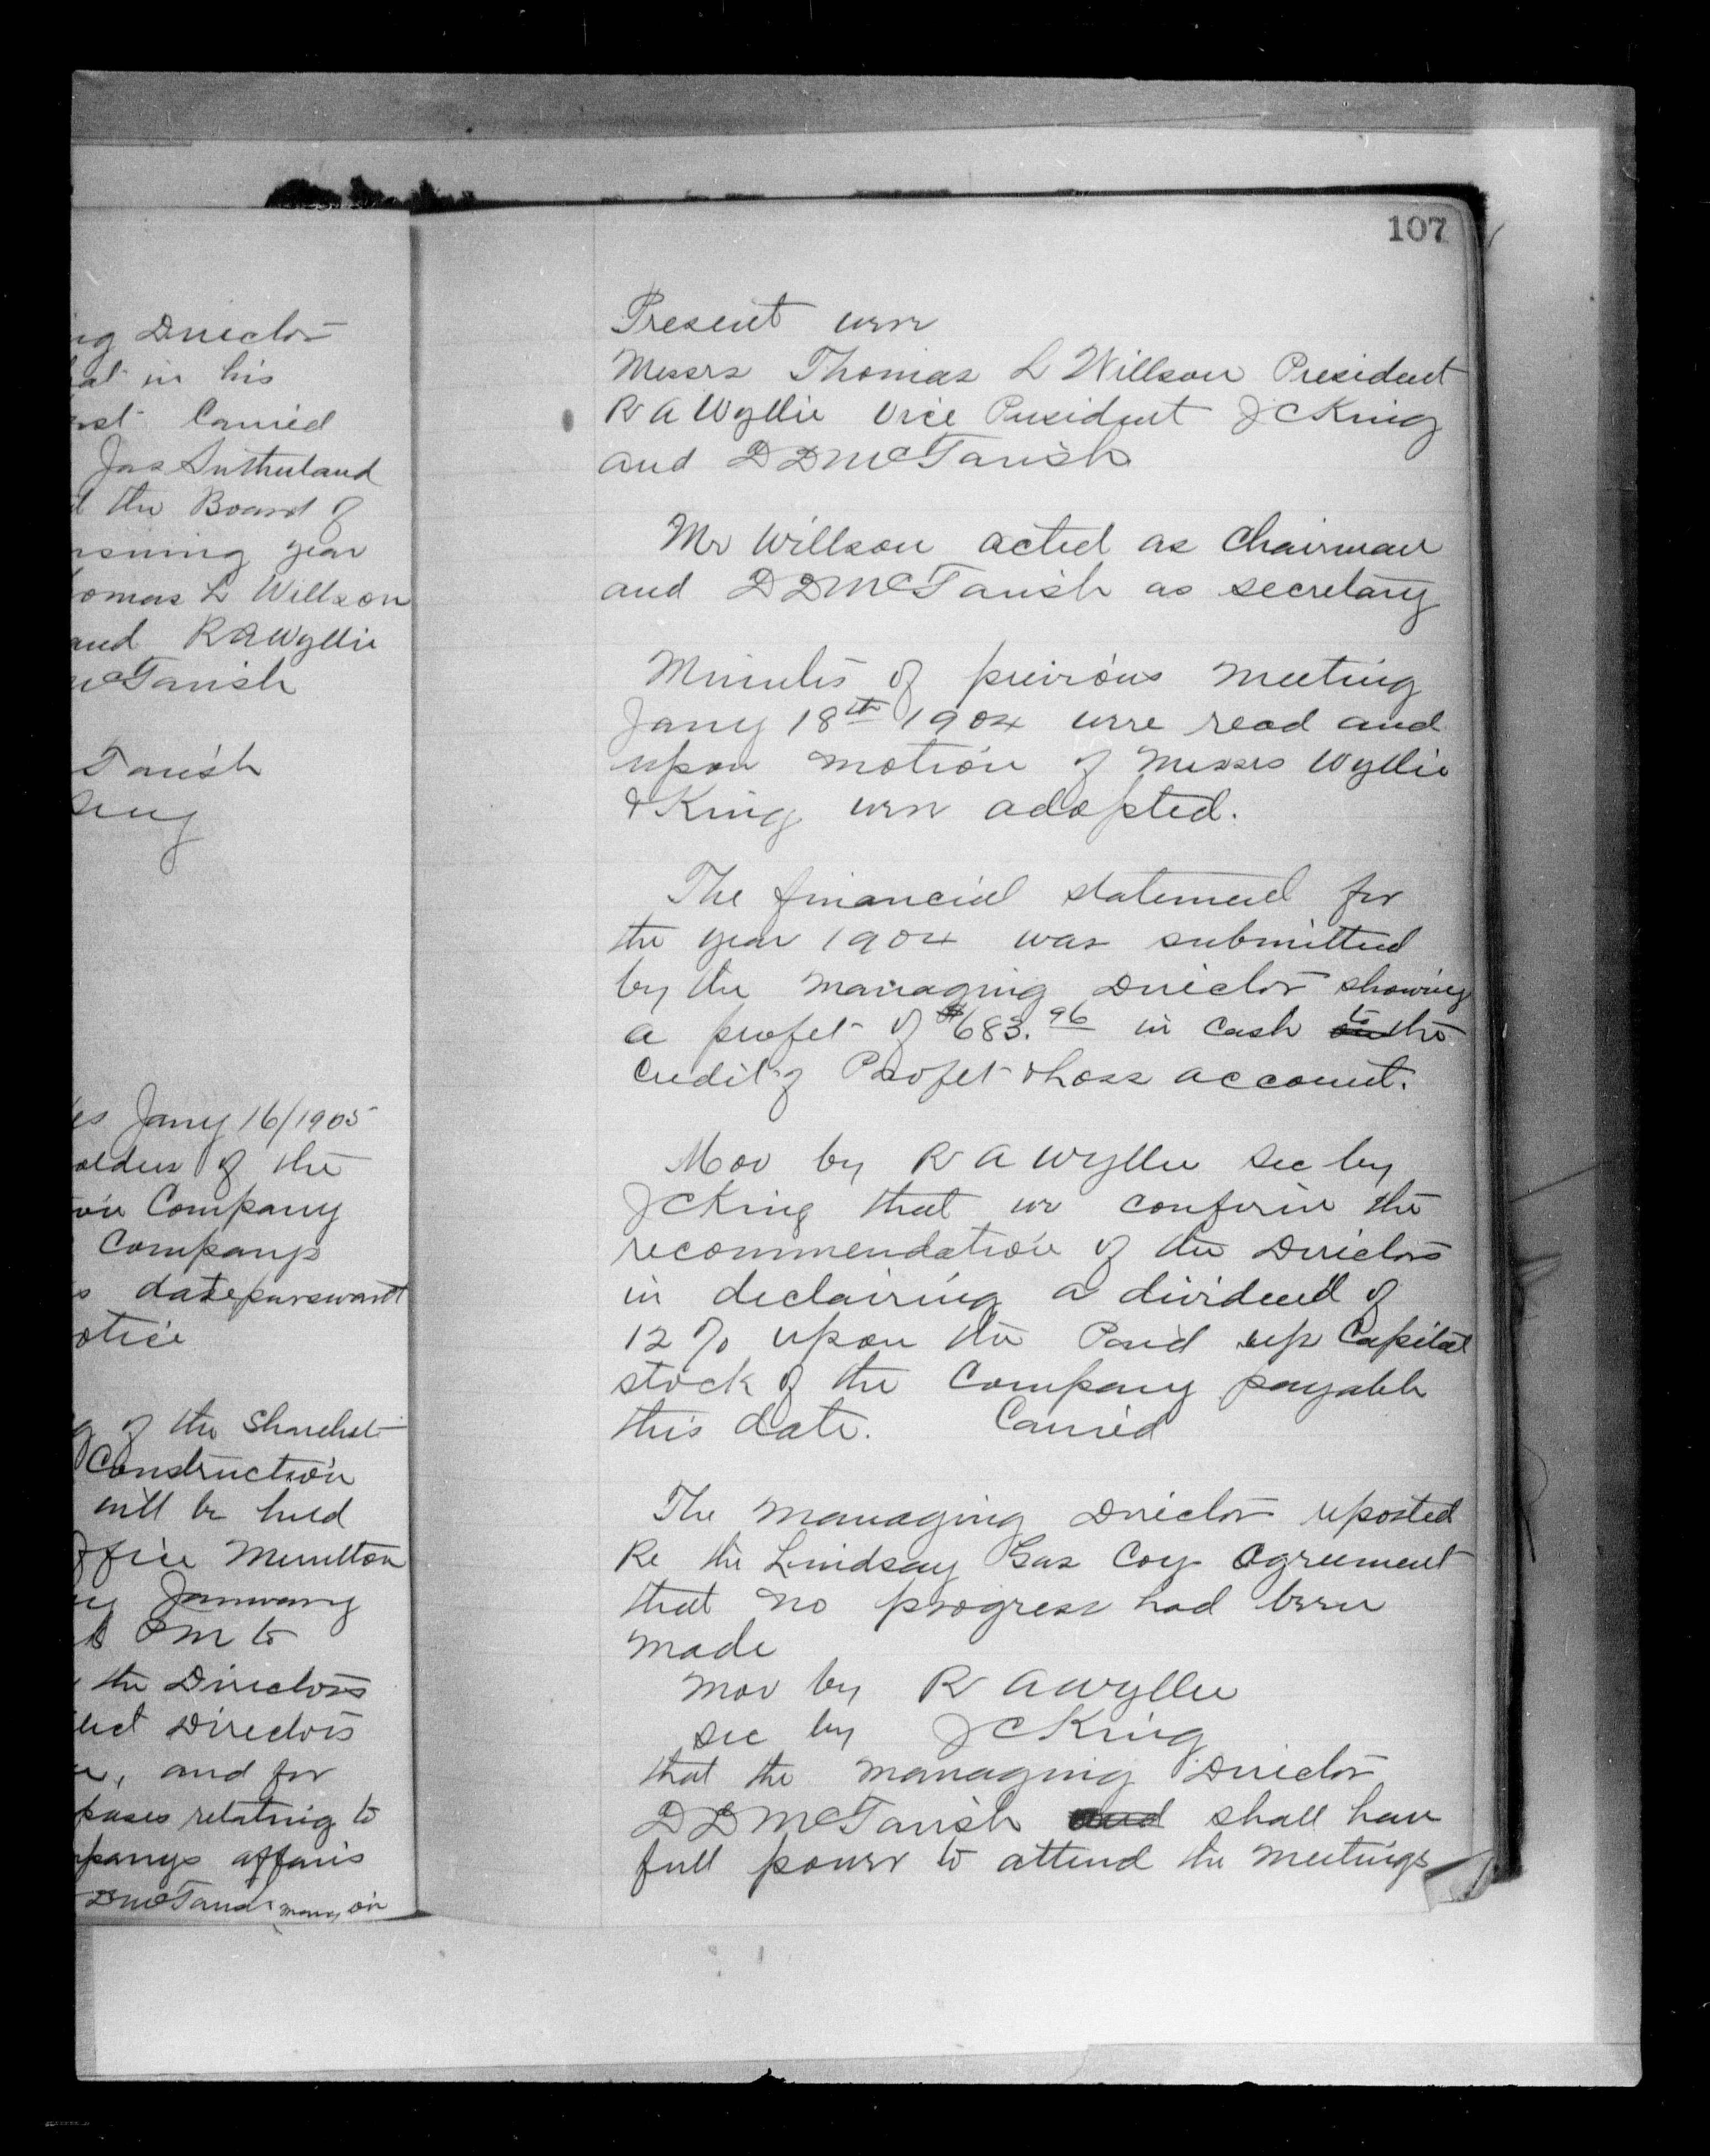 ig Director
at in his
rst Carried
Jas Sutherland
d the Board of
nsuing year
omas L Willson
and R A Wyllie
McTavish
Tavish
es Jany 16/1905
olders of the
Company
Companys
s date pursuant
otice
g of the Sharehol
Construction
will be held
ffice Merritton
January
PM to
the Directors
lect Directors
and for
poses relating to
mpanys affairs
DMcTavish Mang Dir
107
Present were
Messrs Thomas L Willson President
R A Wyllie Vice President J C King
and D D McTavish
Mr Willson acted as Chairman
and D D McTavish as secretary
Minutes of previous meeting
Jany 18th 1904 were read and
upon motion of Messrs Wyllie
& King were adopted.
The financial statement for
the year 1904 was submitted
by the Managing Director showing
a profet of $683.96 in cash to the
credit of Profet & Loss account.
Mov by R A Wyllie sec by
J C King that we confirm the
recommendation of the Directors
in declairing a dividend of
12% upon the Paid up Capital
stock of the Company payable
this date. Carried
The Managing Director reported
Re the Lindsay Gas Coy agreement
that no progress had been
made
Mov by R A Wyllie
sec by J C King
that the Managing Director
D D McTavish and shall have
full power to attend the meetings